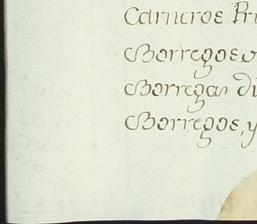 Carneros Pri
Borregos
Borregas di
Borregos, y